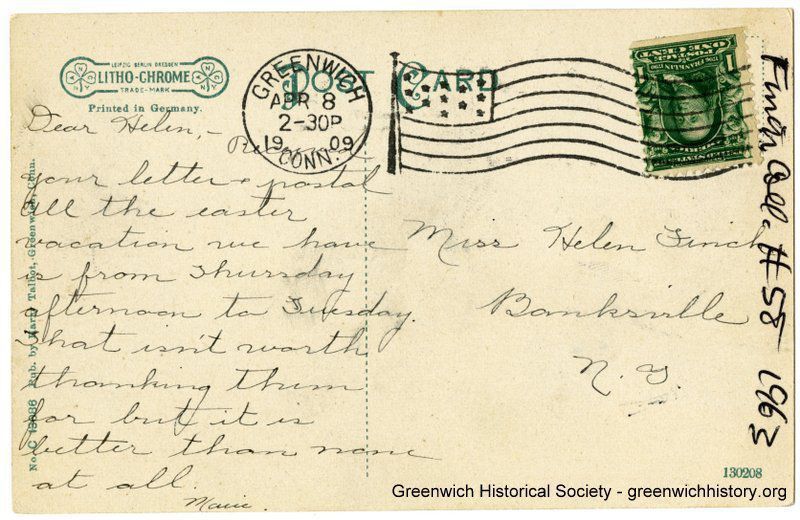 LEIPZIG BERLIN DRESDEN
LITHO-CHROME
TRADE-MARK
Printed in Germany.
POST CARD
GREENWICH
APR 8
2-30P
1909
CONN.
ONE CENT
1
1
Dear Helen,-
your letter & postal
All the easter
vacation we have
is from Thursday
afternoon to Tuesday.
That isn't worth
thanking them
for but it is
better than none
at all.
Marie.
Miss Helen Finch
Banksville
N. Y.
No. C 13086 Pub. by Talbot, Greenwich, Conn.
Finch Coll. #58 1963
130208
Greenwich Historical Society - greenwichhistory.org